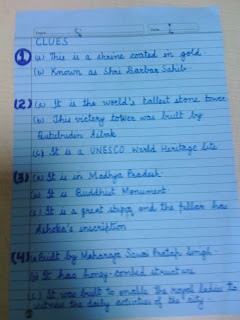 CLUES
(1) (a) This is a shrine coated in gold.
(b) Known as Shri Darbar Sahib.
(2) (a) It is the world's tallest stone tower
(b) This victory tower was built by
Qutubudin Aibak
(c) It is a UNESCO World Heritage Site
(3) (a) It is in Madhya Pradesh.
(b) It is Buddhist Monument.
(c) It is a great stupa and the pillar has
Ashoka's inscription
(4) (a) Built by Maharaja Sawai Pratap Singh
(b) It has honey-combed structure
(c) It was built to enable the royal ladies to
witness the daily activities of the city